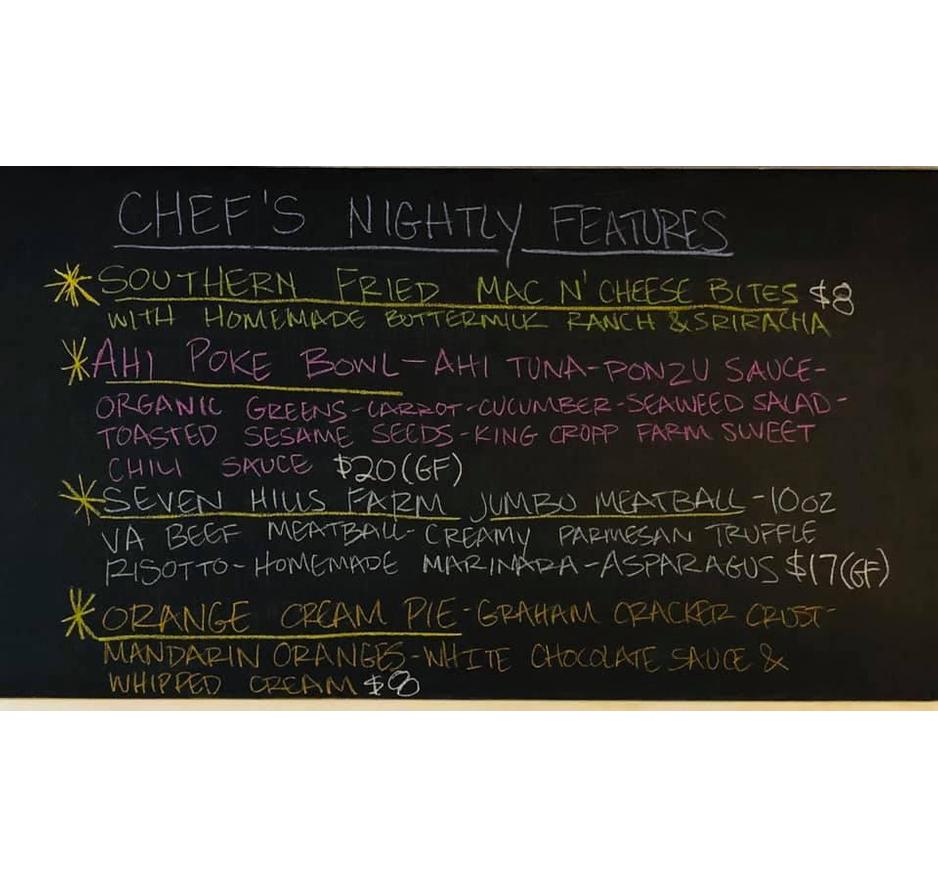 CHEF'S NIGHTLY FEATURES
SOUTHERN FRIED MAC N' CHEESE BITES $8
WITH HOMEMADE BUTTERMILK RANCH & SRIRACHA
AHI POKE BOWL-AHI TUNA-PONZU SAUCE-
ORGANIC GREENS-CARROT-CUCUMBER-SEAWEED SALAD-
TOASTED SESAME SEEDS-KING CROPP FARM SWEET
CHILI SAUCE $20(GF)
SEVEN HILLS FARM JUMBO MEATBALL-10OZ
VA BEEF MEATBALL-CREAMY PARMESAN TRUFFLE
RISOTTO-HOMEMADE MARINARA-ASPARAGUS $17(GF)
ORANGE CREAM PIE-GRAHAM CRACKER CRUST-
MANDARIN ORANGES-WHITE CHOCOLATE SAUCE &
WHIPPED CREAM $8